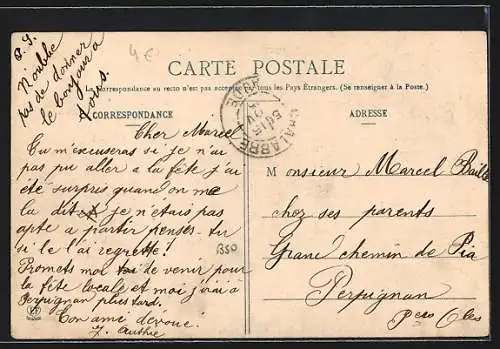 P.S.
N'oublie
pas de donner
le bonjour à
tous.
4 €
CARTE POSTALE
La Correspondance au recto n'est pas acceptée par tous les Pays Étrangers. (Se renseigner à la Poste.)
CORRESPONDANCE
Cher Marcel
Tu m'excuseras si je n'ai
pas pu aller a la fête j'ai
été surpris quand on me
la dit je n'étais pas
apte a partir penses-tu
si le l'ai regretté!
Promets moi de venir pour
la fête locale et moi j'irai à
Perpignan plus tard.
Ton ami dévoué.
J. Authié
1350
CHALABRE
ADRESSE
Monsieur Marcel Baille
chez ses parents
Grand chemin de Pia
Perpignan
Pees Oles